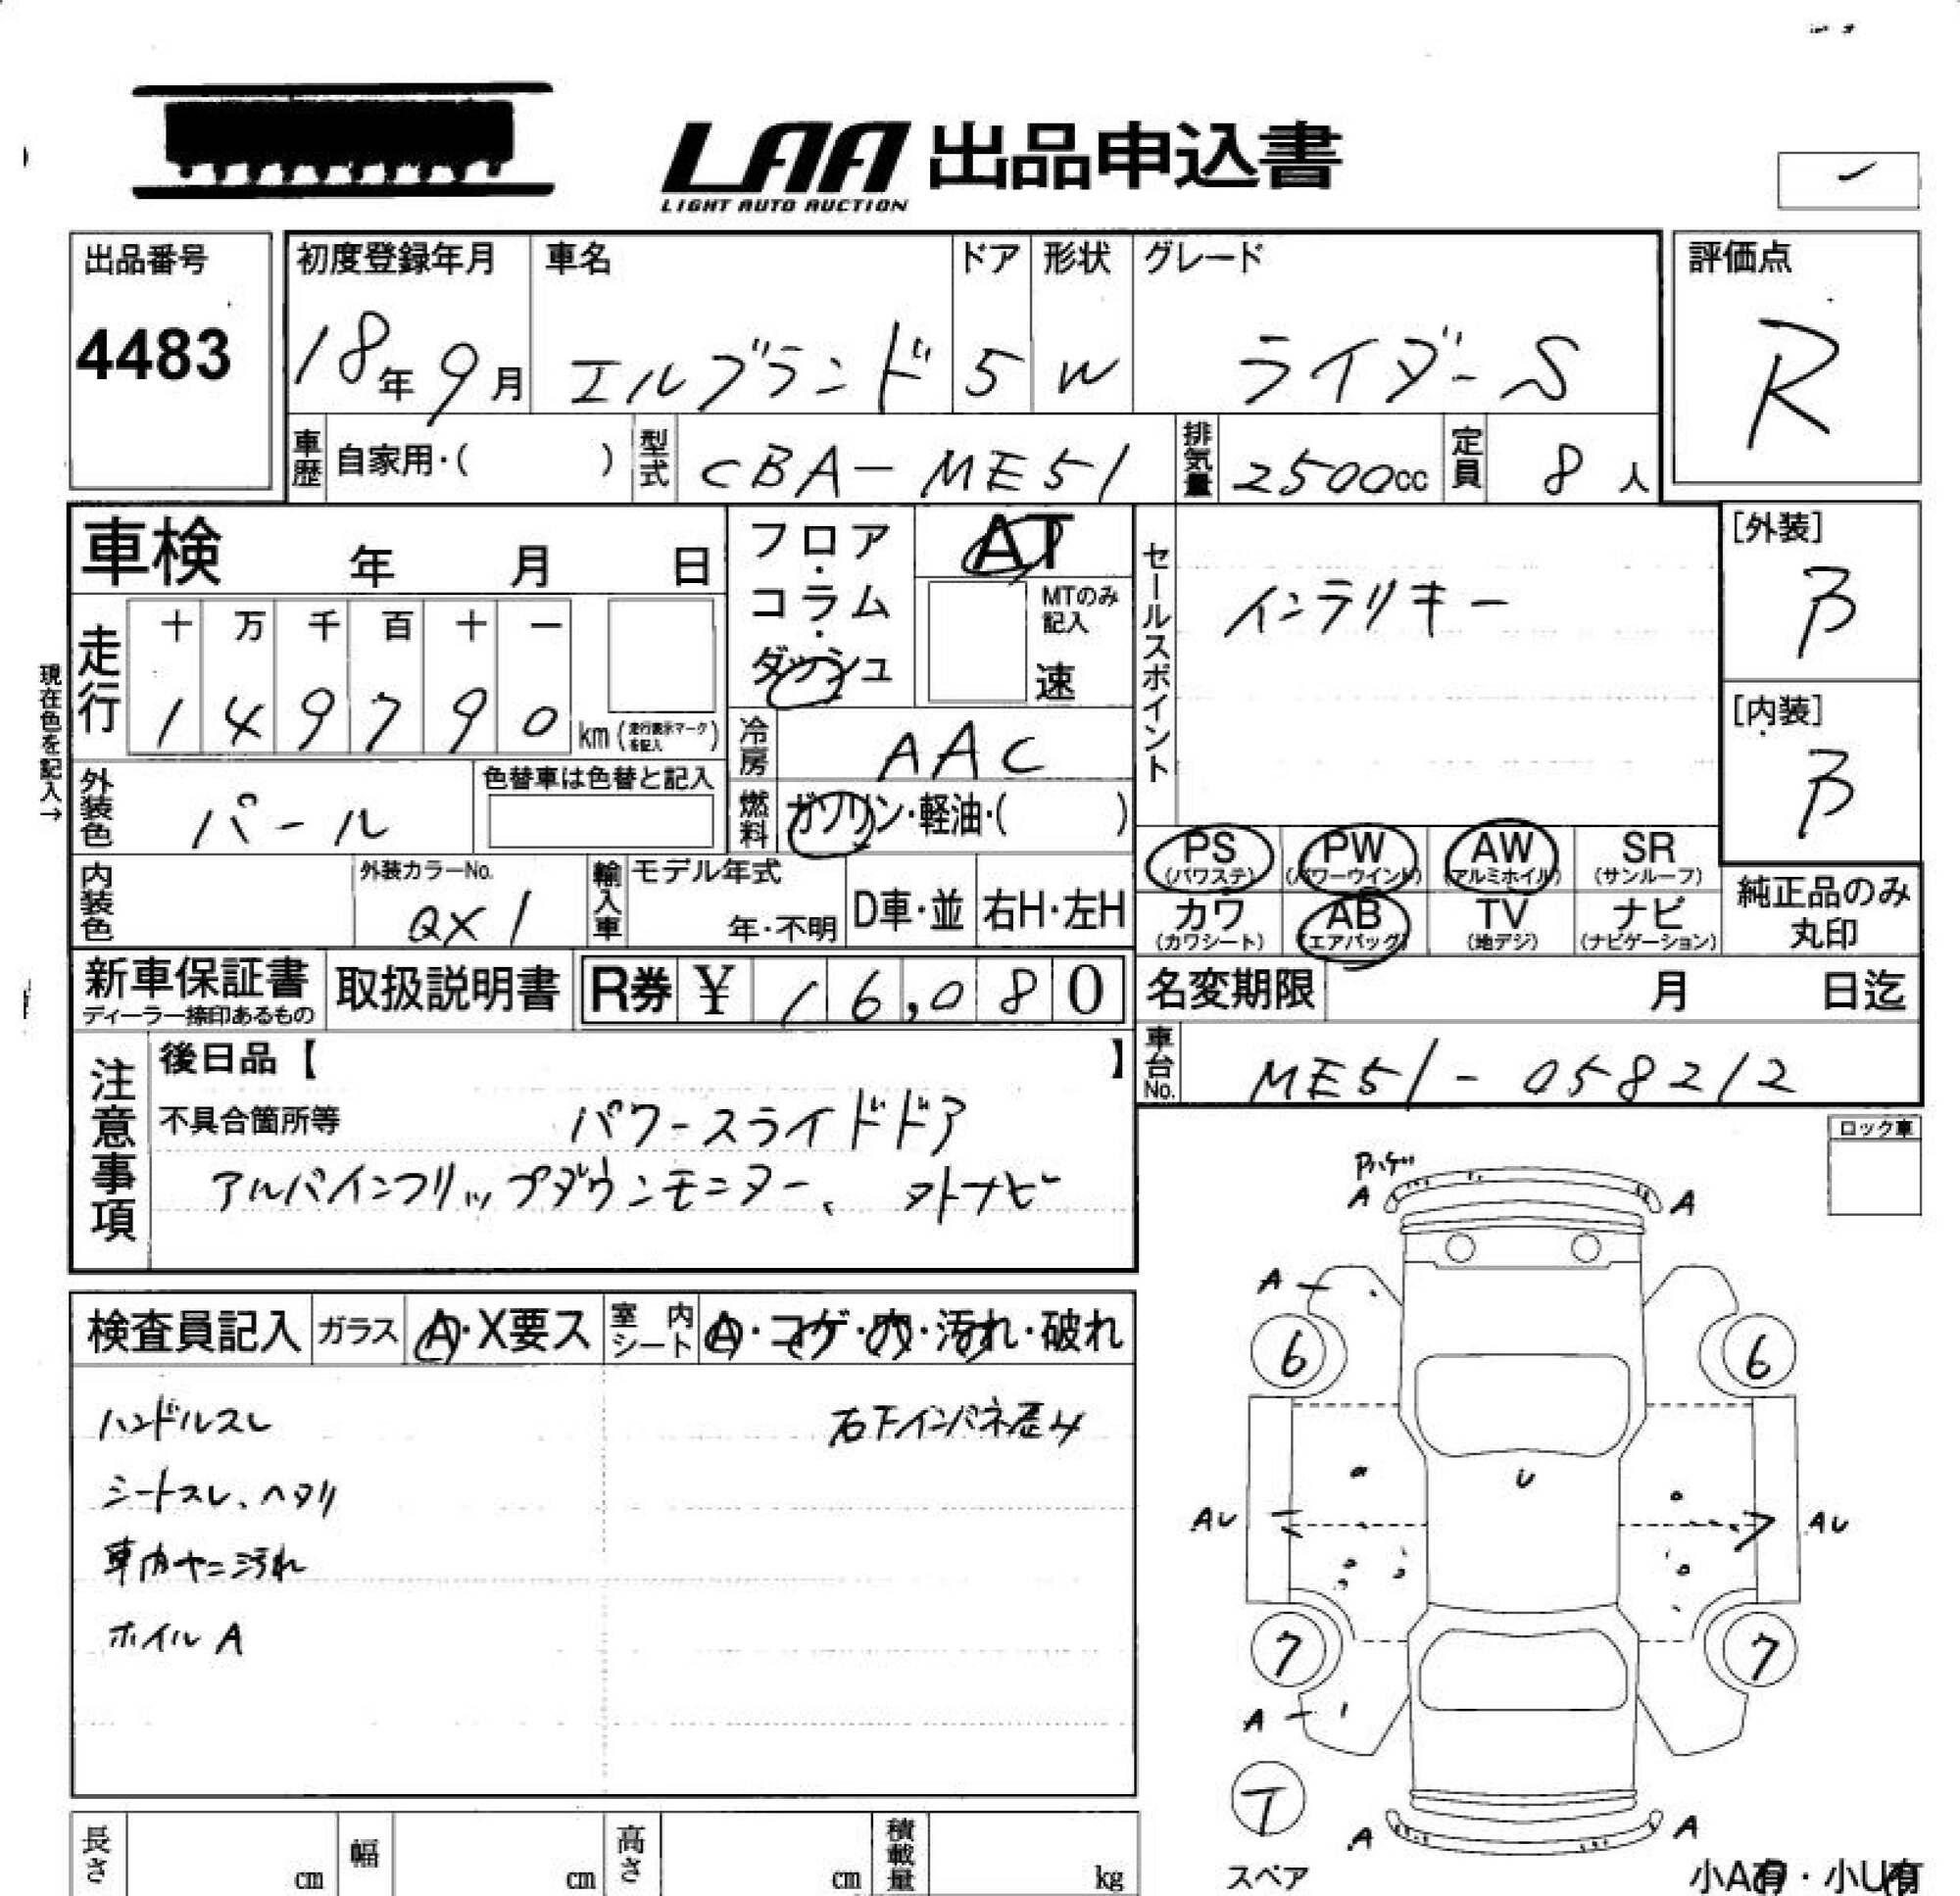 LAA 出品申込書
LIGHT AUTO AUCTION
出品番号
4483
初度登録年月
18年9月
車名
エルグランド
ドア
5
形状
W
グレード
ライダーS
評価点
R
車歴
自家用・( )
型式
CBA-ME51
排気量
2500cc
定員
8人
車検 年 月 日
フロア・コラム・ダッシュ
AT
MTのみ記入
速
セールスポイント
インテリキー
[外装]
B
[内装]
B
現在色を記入→
走行
十 万 千 百 十 一
1 4 9 7 9 0
km (走行表示マークを記入)
冷房
AAC
外装色
パール
色替車は色替と記入
燃料
ガソリン・軽油・( )
PS (パワステ)
PW (パワーウインド)
AW (アルミホイル)
SR (サンルーフ)
カワ (カワシート)
AB (エアバッグ)
TV (地デジ)
ナビ (ナビゲーション)
純正品のみ
丸印
内装色
外装カラーNo.
QX1
輸入車
モデル年式
年・不明
D車・並
右H・左H
新車保証書
ディーラー捺印あるもの
取扱説明書
R券 ¥ 16,080
名変期限 月 日迄
車台No.
ME51-058212
注意事項
後日品【 】
不具合箇所等 パワースライドドア
アルパインフリップダウンモニター、外ナビ
ロック車
検査員記入
ガラス
A・X要ス
室内シート
A・コゲ・穴・汚れ・破れ
ハンドルスレ
右下インパネ歪み
シートスレ、ヘタリ
車内ヤニ汚れ
ホイルA
A
A
A
6
6
U
AU
AU
7
7
A
T
スペア
A
A
小A有・小U有
長さ cm
幅 cm
高さ cm
積載量 kg